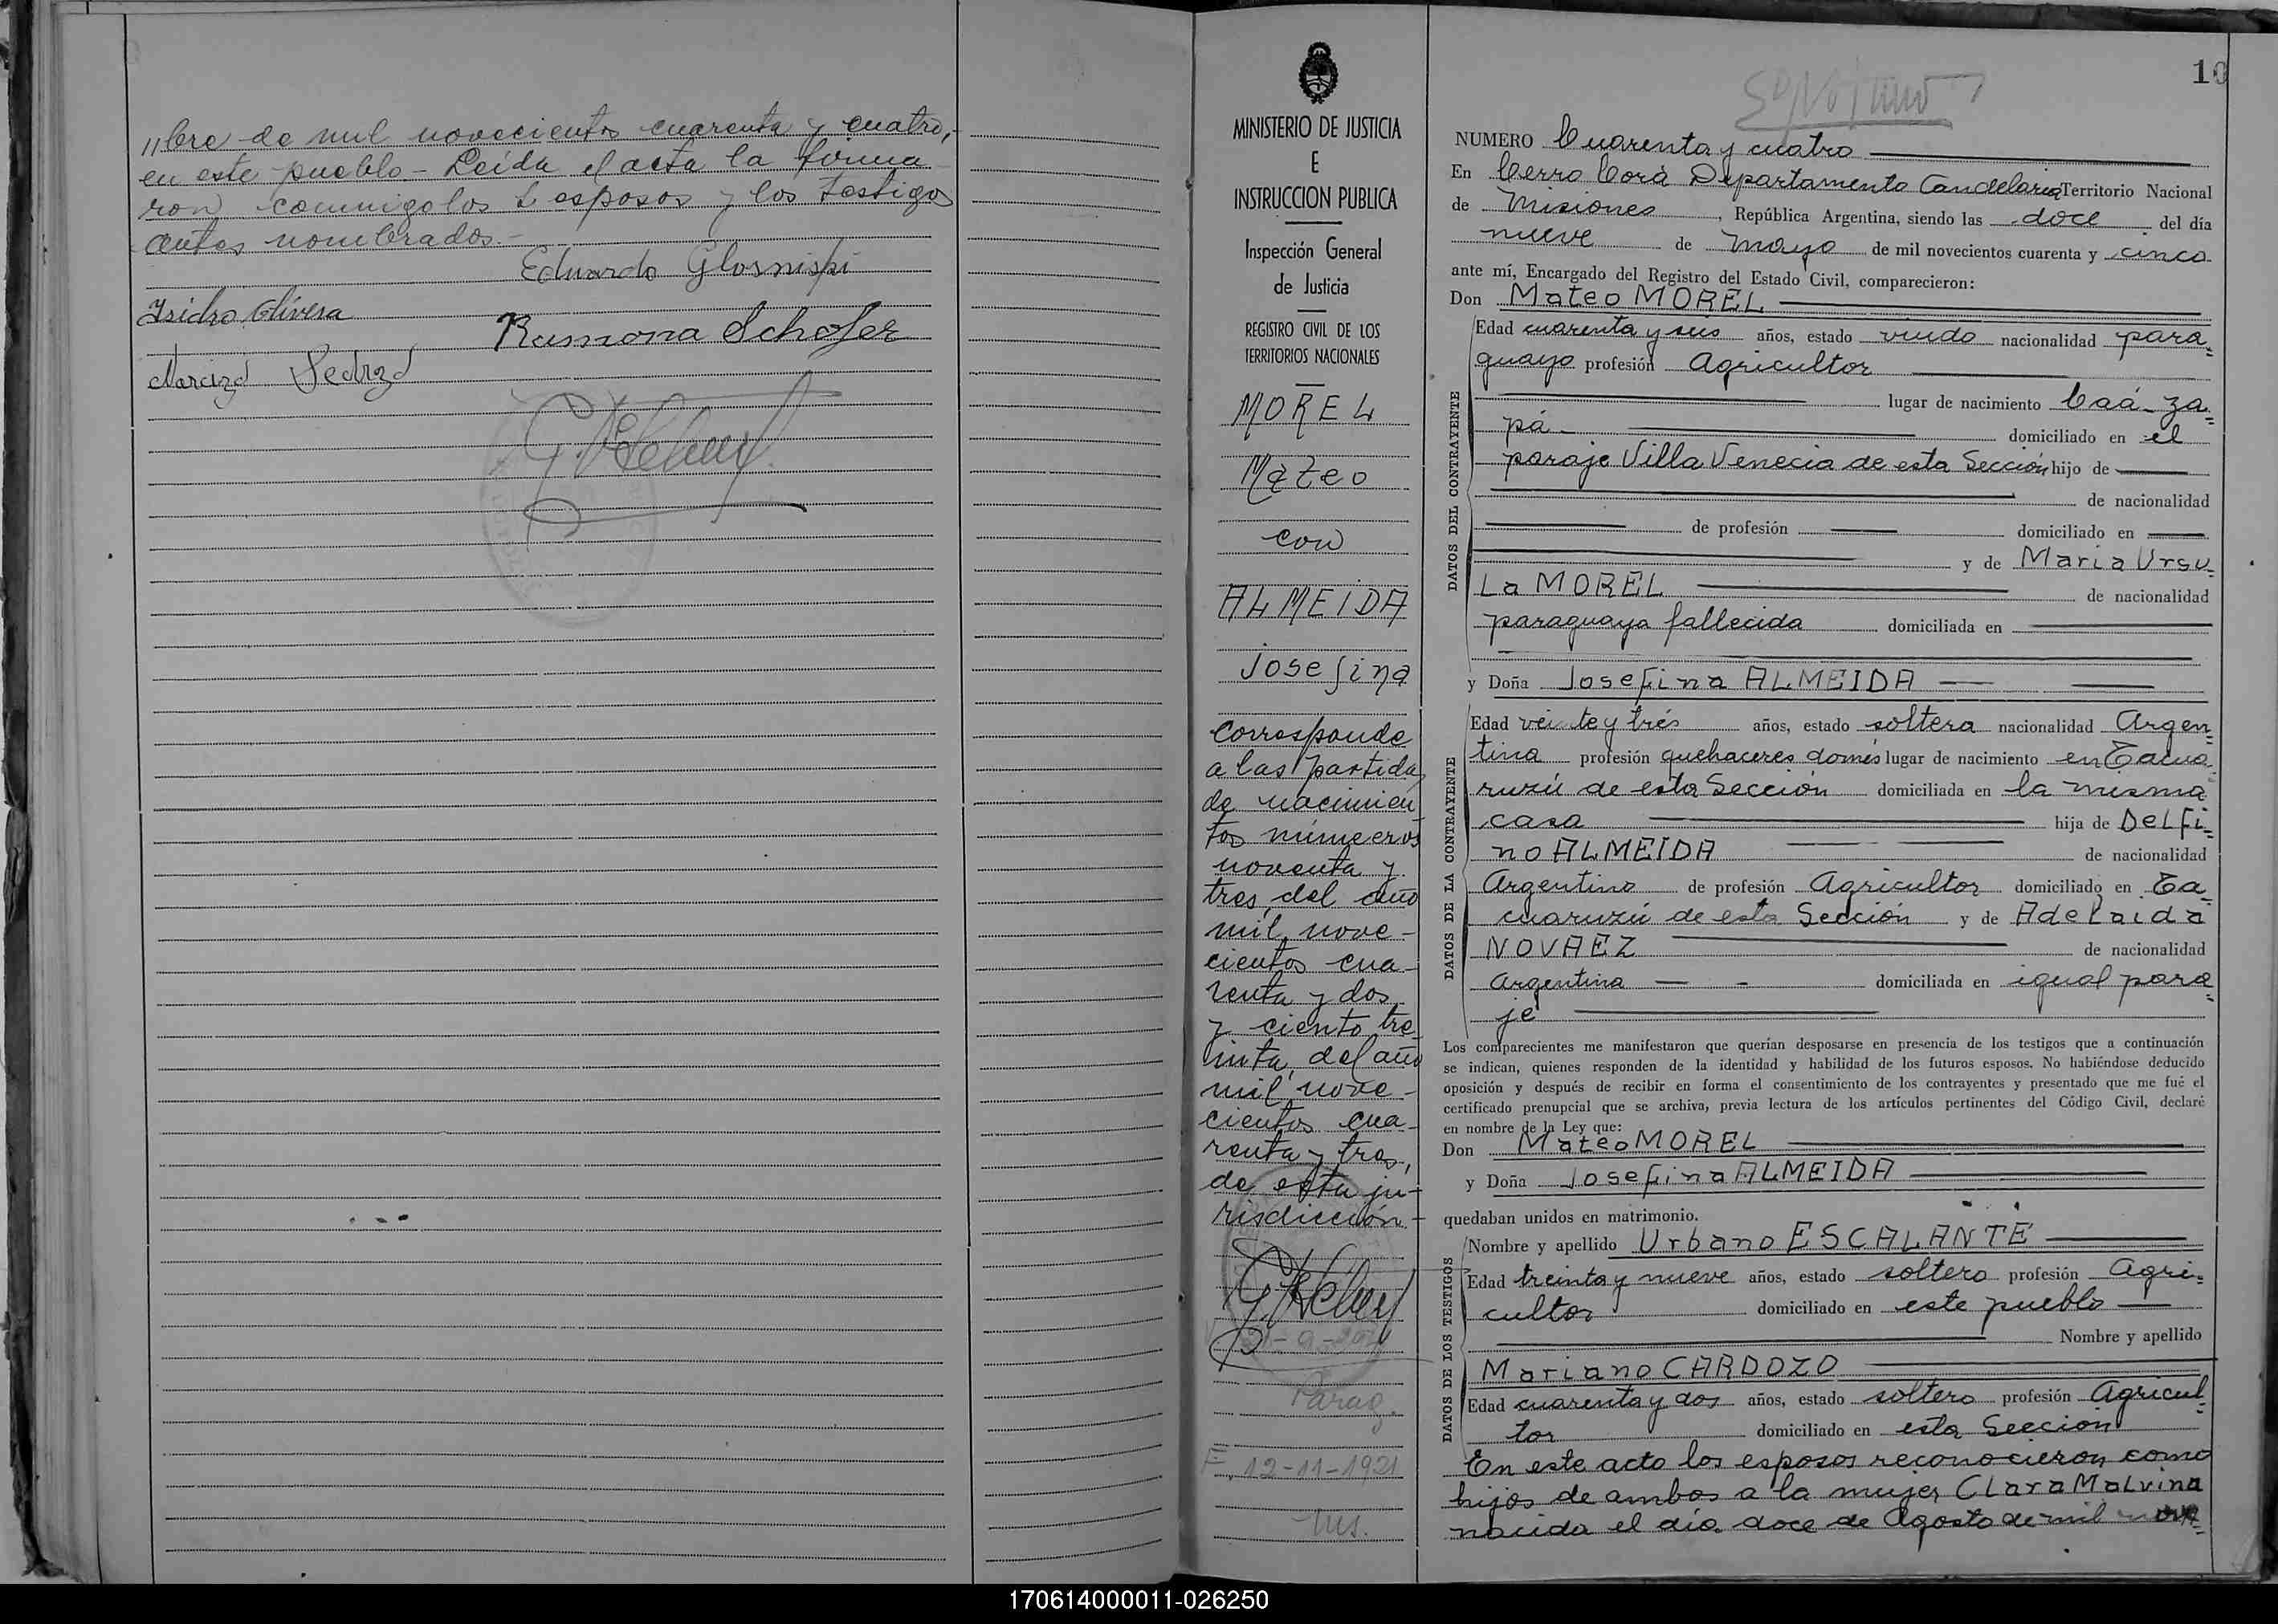 〃bre de mil novecientos cuarenta y cuatro,
en este pueblo - Leída el acta la firma
ron conmigo los esposos y los testigos
antes nombrados.-
Eduardo Glosnispi
Isidro Olivera
Ramona Schofer
Narcizo Pedrozo
10
MINISTERIO DE JUSTICIA
E
INSTRUCCION PUBLICA
Inspección General
de Justicia
REGISTRO CIVIL DE LOS
TERRITORIOS NACIONALES
MOREL
Mateo
con
ALMEIDA
Josefina
Corresponde
a las partidas
de nacimien
tos números
noventa y
tres, del año
mil nove-
cientos cua-
renta y dos
y ciento tre
inta, del año
mil nove-
cientos cua-
renta y tres,
de esta ju-
risdicción.-
Parag.
F. 12-11-1921
Mis.
NUMERO Cuarenta y cuatro
En Cerro Corá Departamento Candelaria Territorio Nacional
de Misiones, República Argentina, siendo las doce del día
nueve de Mayo de mil novecientos cuarenta y cinco
ante mí, Encargado del Registro del Estado Civil, comparecieron:
Don Mateo MOREL
DATOS DEL CONTRAYENTE
Edad cuarenta y seis años, estado viudo nacionalidad para=
guayo profesión Agricultor
lugar de nacimiento Caá-za=
pá- domiciliado en el
paraje Villa Venecia de esta Sección hijo de
de nacionalidad
de profesión domiciliado en
y de Maria Ursu=
La MOREL de nacionalidad
paraguaya fallecida domiciliada en
y Doña Josefina ALMEIDA
DATOS DE LA CONTRAYENTE
Edad veinte y trés años, estado soltera nacionalidad Argen=
tina profesión quehaceres domés lugar de nacimiento en Tacua=
ruzú de esta Sección domiciliada en la misma
casa hija de DeLfi=
no ALMEIDA de nacionalidad
Argentino de profesión Agricultor domiciliado en Ta
cuaruzú de esta Sección y de AdeLaida
NOVAEZ de nacionalidad
argentina domiciliada en igual para=
je
Los comparecientes me manifestaron que querían desposarse en presencia de los testigos que a continuación
se indican, quienes responden de la identidad y habilidad de los futuros esposos. No habiéndose deducido
oposición y después de recibir en forma el consentimiento de los contrayentes y presentado que me fué el
certificado prenupcial que se archiva, previa lectura de los artículos pertinentes del Código Civil, declaré
en nombre de la Ley que:
Don Mateo MOREL
y Doña Josefina ALMEIDA
quedaban unidos en matrimonio.
DATOS DE LOS TESTIGOS
Nombre y apellido Urbano ESCALANTE
Edad treinta y nueve años, estado soltero profesión Agri=
cultor domiciliado en este pueblo
Nombre y apellido
Mariano CARDOZO
Edad cuarenta y dos años, estado soltero profesión Agricul=
tor domiciliado en esta Sección
En este acto los esposos reconocieron como
hijos de ambos a la mujer CLara MaLvina
nacida el día doce de Agosto de mil nove=
170614000011-026250